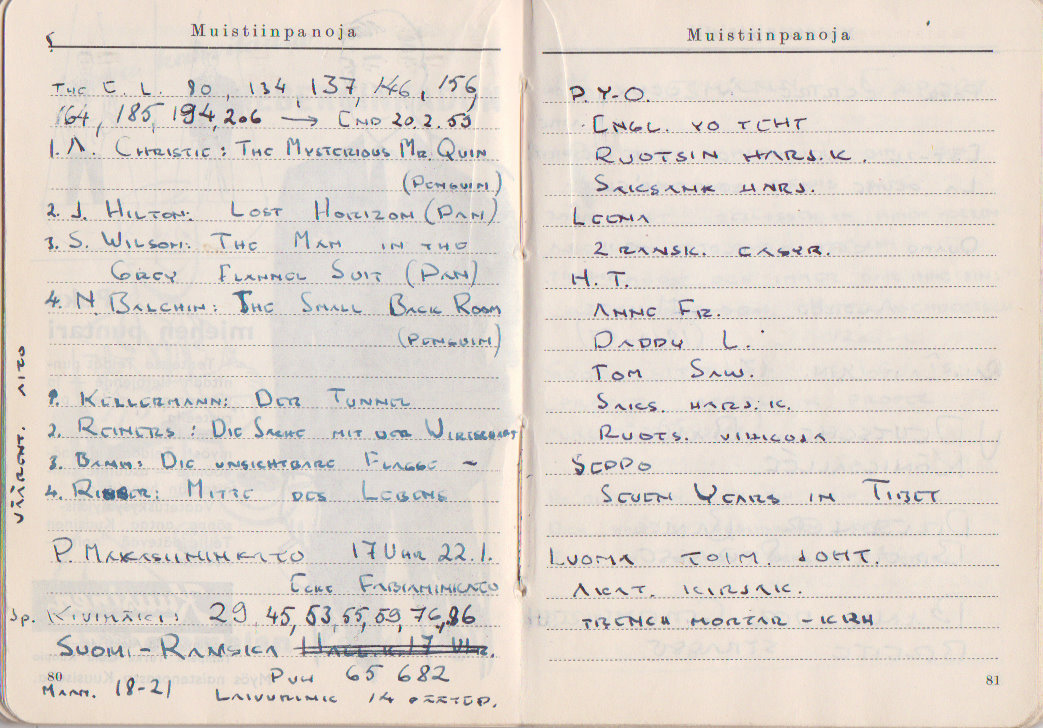 Muistiinpanoja
THE E. L. 80, 134, 137, 146, 156,
164, 185, 194, 206 → END 20.2.59
1. A. CHRISTIE: THE MYSTERIOUS MR. QUIN
(PENGUIN)
2. J. HILTON: LOST HORIZON (PAN)
3. S. WILSON: THE MAN IN THE
GREY FLANNEL SUIT (PAN)
4. N. BALCHIN: THE SMALL BACK ROOM
(PENGUIN)
1. KELLERMANN: DER TUNNEL
2. REINERS: DIE SACHE MIT DER WIRTSCHAFT
3. BAMM: DIE UNSICHTBARE FLAGGE ~
4. RINSER: MITTE DES LEBENS
VÄÄRENT. AITO
P. MAKASIININKATU 17 UHR 22.1.
ECKE FABIANINKATU
Sp. KIVIMÄKI: 29, 45, 53, 55, 59, 76, 86
SUOMI-RANSKA HALL.K. 17 UHR.
PUH 65 682
80
MAAN. 18-21 LAIVURINK 14
Muistiinpanoja
P. Y-O.
ENGL. YO TEHT
RUOTSIN HARJ.K.
SAKSANK HARJ.
LEENA
2 RANSK.
H. T.
ANNE FR.
DADDY L.
TOM SAW.
SAKS. HARJ.K.
RUOTS. VIHKOJA
SEPPO
SEVEN YEARS IN TIBET
LUOMA TOIM. JOHT.
AKAT. KIRJAK.
TRENCH MORTAR - KRH
81